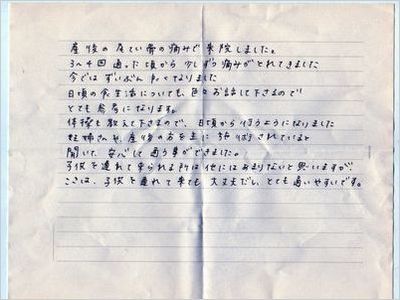 産後の尾てい骨の痛みで来院しました。
3〜4回通った頃から少しずつ痛みがとれてきました
今ではずいぶん良くなりました
日頃の食生活についても、色々お話して下さるので
とても参考になります。
体操も教えて下さるので、日頃から行うようになりました
妊婦さんや、産後の方を主に施術されていると
聞いて、安心して通う事ができました。
子供を連れて来られる所は他にはあまりないと思いますが、
ここは、子供を連れて来ても大丈夫だし、とても通いやすいです。